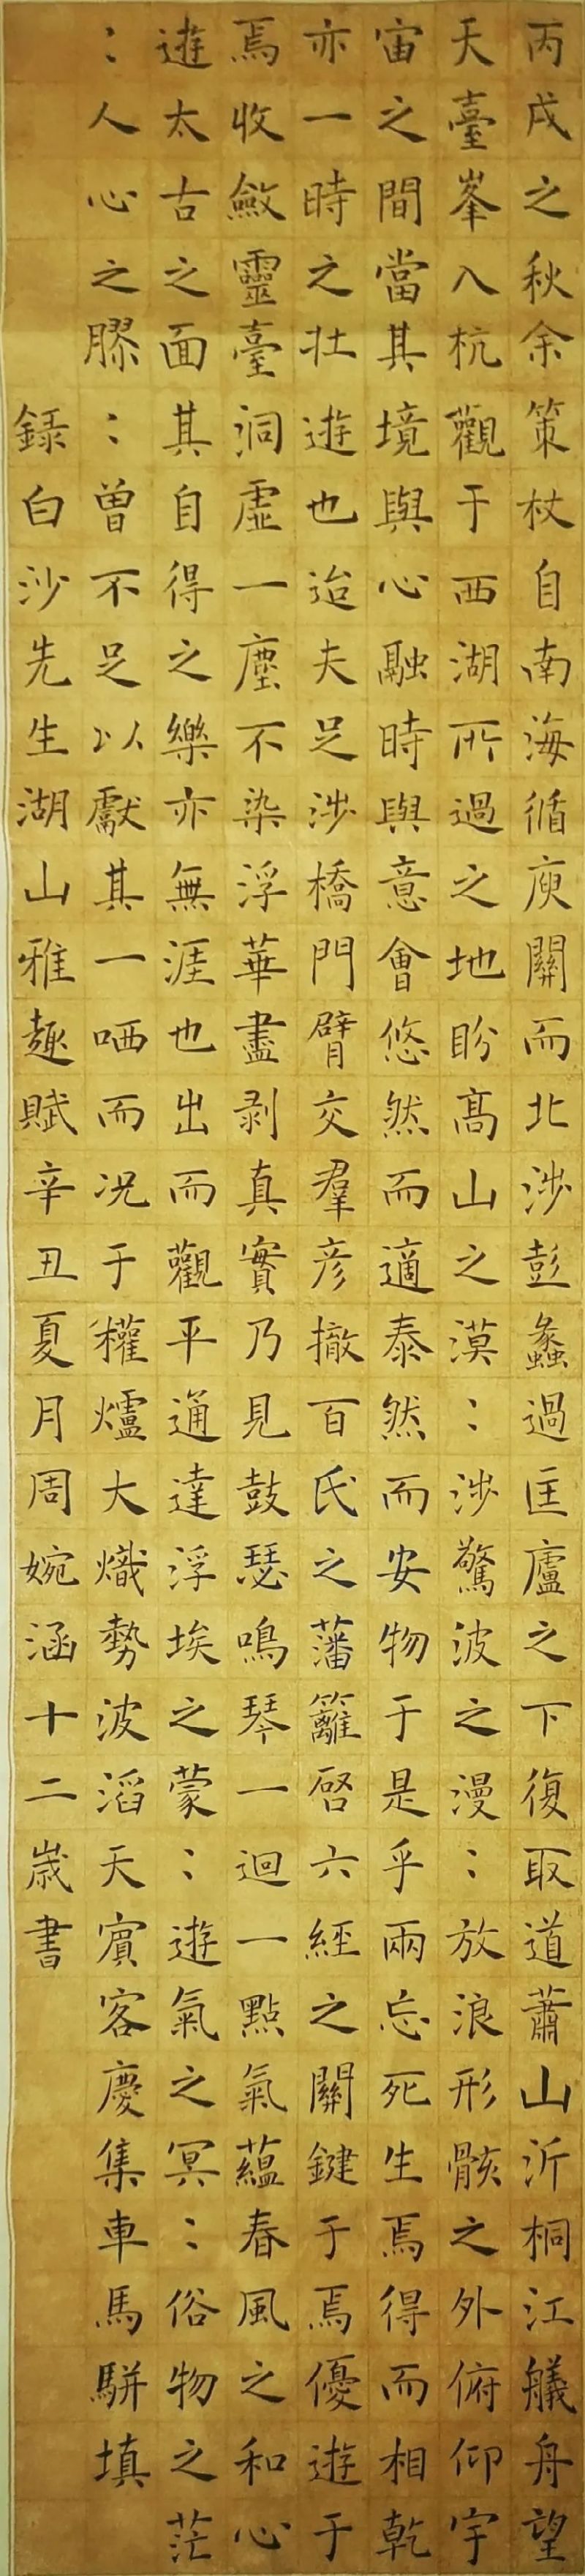 丙戌之秋余策杖自南海循庾關而北涉彭蠡過匡廬之下復取道蕭山沂桐江艤舟望
天臺峯入杭觀于西湖所過之地盼高山之漠：涉驚波之漫：放浪形骸之外俯仰宇
宙之間當其境與心融時與意會悠然而適泰然而安物于是乎兩忘死生焉得而相乾
亦一時之壮遊也迨夫足涉橋門臂交羣彦撤百氏之藩籬啓六經之關鍵于焉優遊于
焉收斂靈臺洞虛一塵不染浮華盡剥真實乃見鼓瑟鳴琴一迴一點氣蘊春風之和心
遊太古之面其自得之樂亦無涯也出而觀乎通達浮埃之蒙：遊氣之冥：俗物之茫
：人心之膠：曾不足以獻其一哂而况于權爐大熾勢波滔天賓客慶集車馬駢填
録白沙先生湖山雅趣賦辛丑夏月周婉涵十二歲書